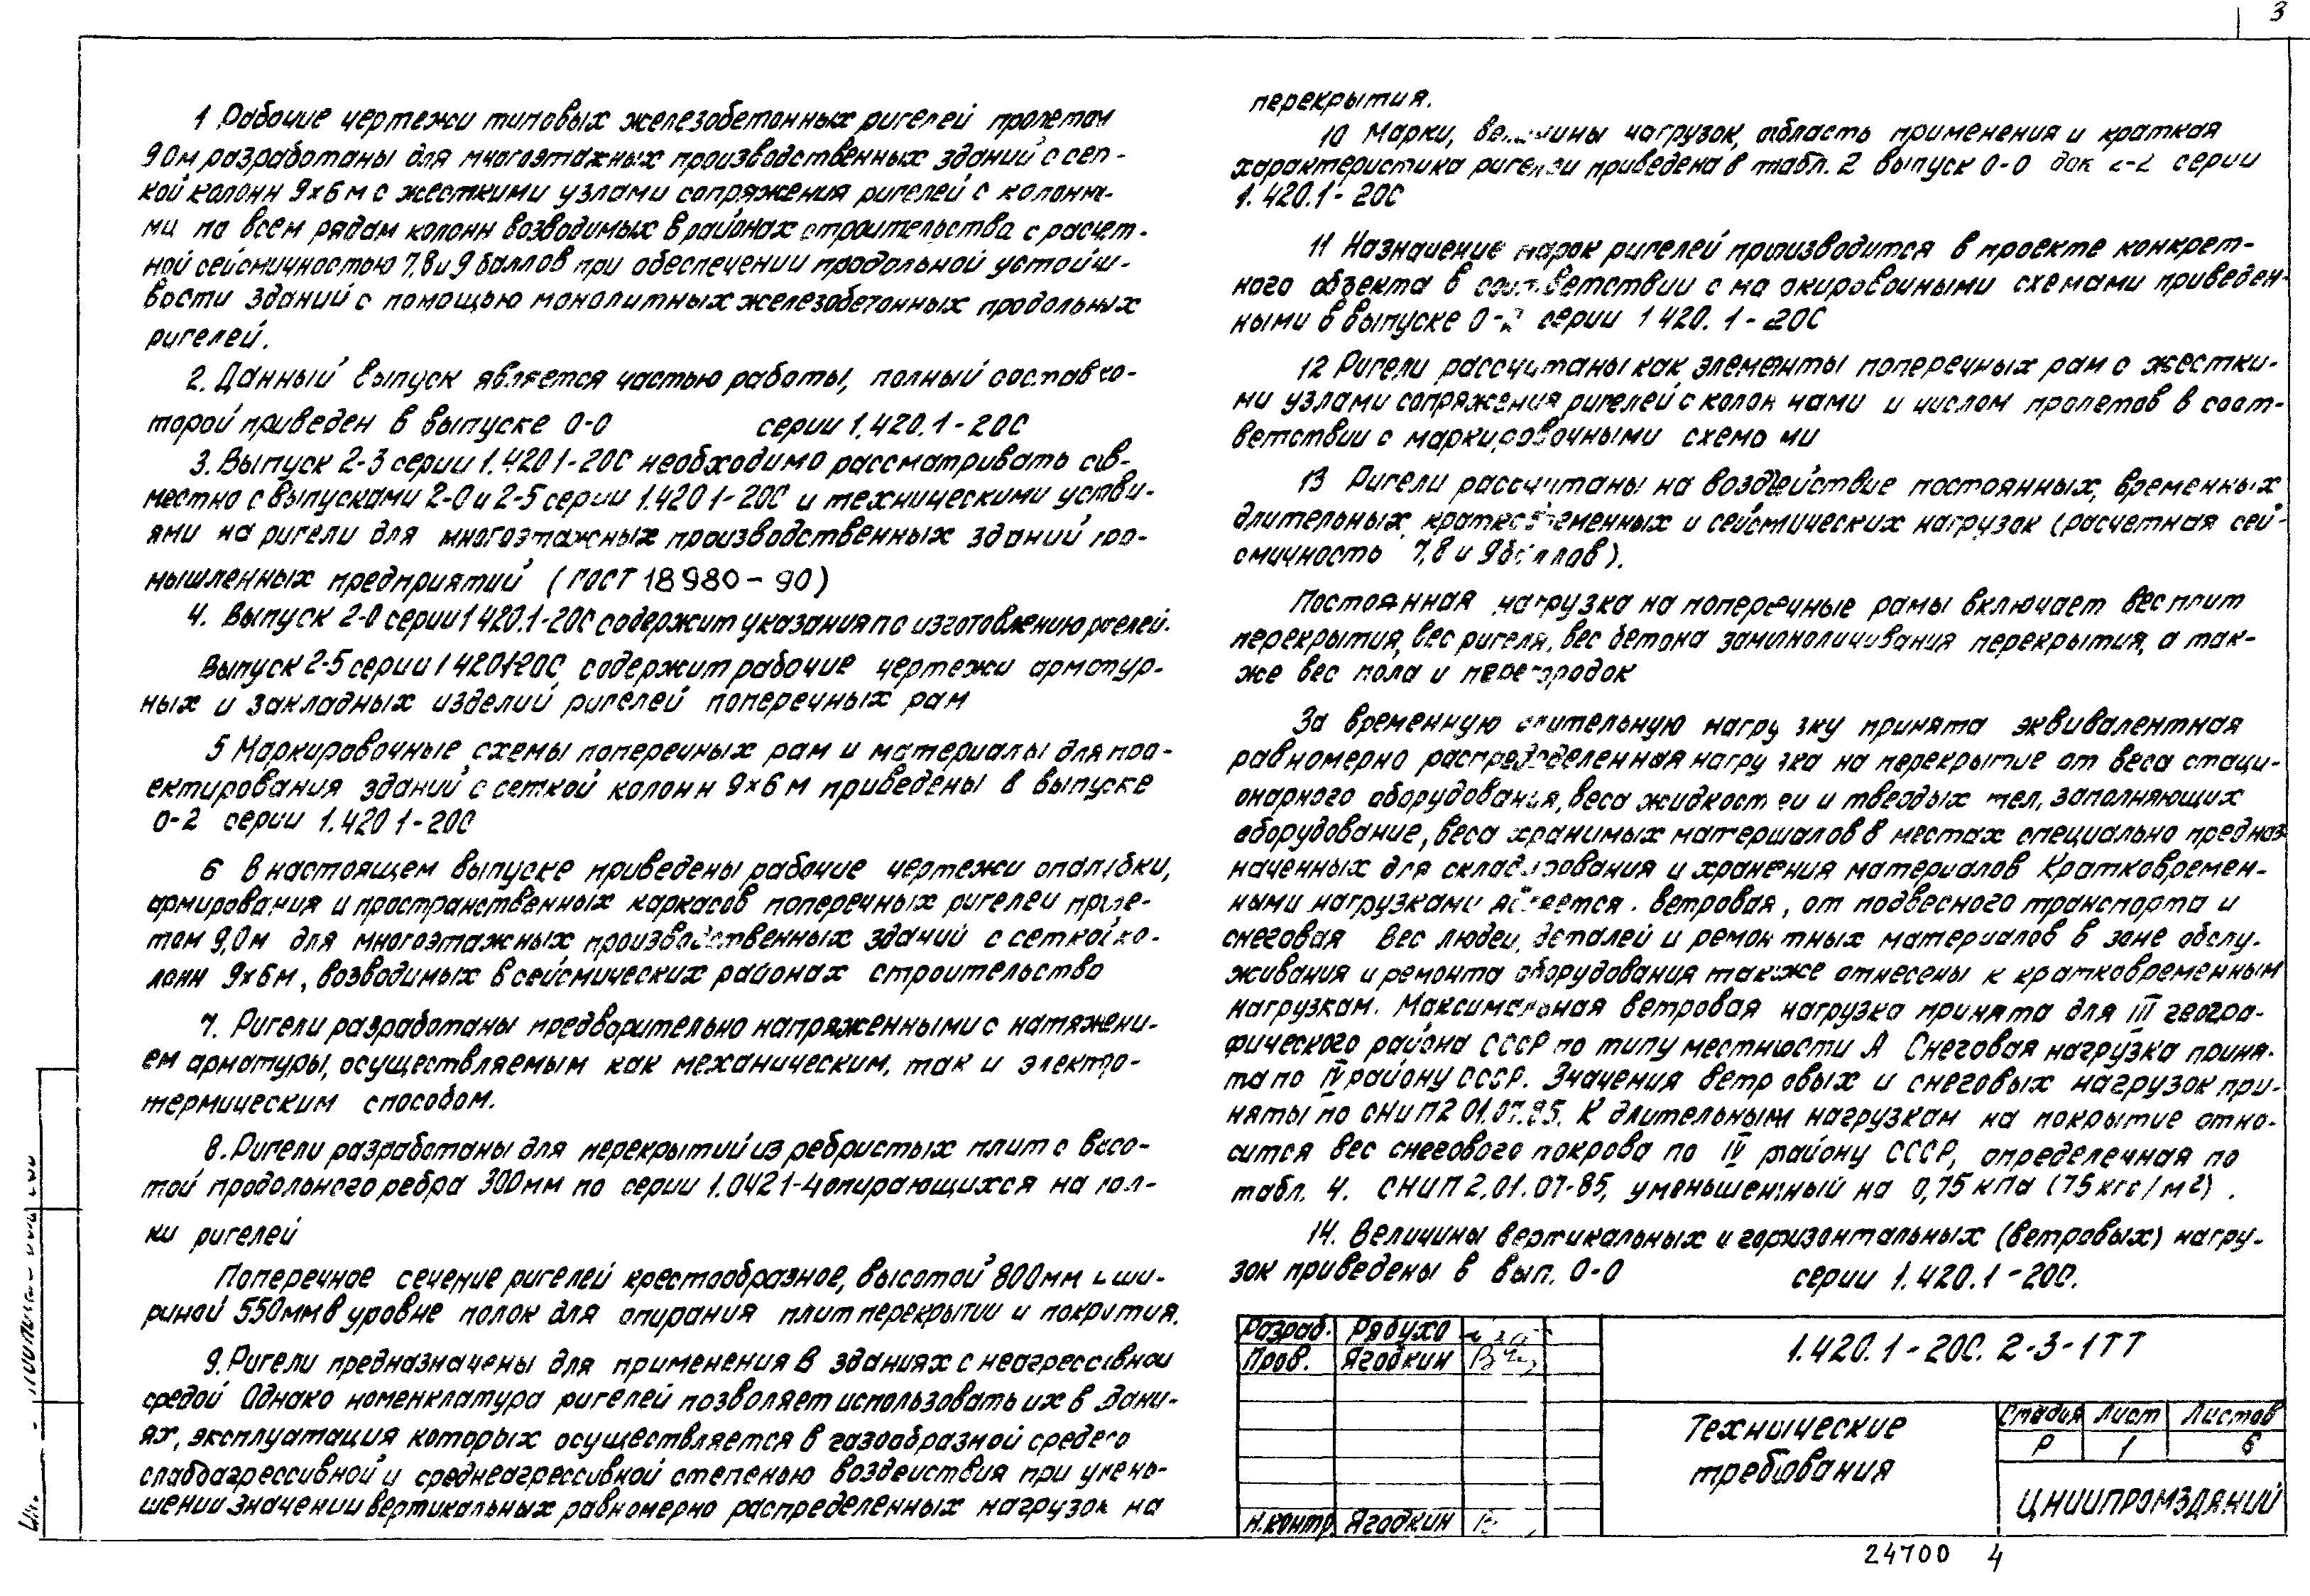 3
1 Рабочие чертежи типовых железобетонных ригелей пролетом
9 0м разработаны для многоэтажных производственных зданий с сет-
кой колонн 9х6 м с жесткими узлами сопряжения ригелей с колонна-
ми по всем рядам колонн возводимых в районах строительства с расчет-
ной сейсмичностью 7,8 и 9 баллов при обеспечении продольной устойчи-
вости зданий с помощью монолитных железобетонных продольных
ригелей.
2. Данный выпуск является частью работы, полный состав ко-
торой приведен в выпуске 0-0 серии 1.420.1-20С
3. Выпуск 2-3 серии 1.420 1-20С необходимо рассматривать сов-
местно с выпусками 2-0 и 2-5 серии 1.420 1-20С и техническими услови-
ями на ригели для многоэтажных производственных зданий про-
мышленных предприятий (ГОСТ 18980-90)
4. Выпуск 2-0 серии 1 420.1-20С содержит указания по изготовлению ригелей.
Выпуск 2-5 серии 1 420 1-20С содержит рабочие чертежи арматур-
ных и закладных изделий ригелей поперечных рам
5 Маркировочные схемы поперечных рам и материалы для про-
ектирования зданий с сеткой колонн 9х6 м приведены в выпуске
0-2 серии 1.420 1-20С
6 В настоящем выпуске приведены рабочие чертежи опалубки,
армирования и пространственных каркасов поперечных ригелей проле-
том 9,0м для многоэтажных производственных зданий с сеткой ко-
лонн 9х6м, возводимых в сейсмических районах строительства
7. Ригели разработаны предварительно напряженными с натяжени-
ем арматуры, осуществляемым как механическим, так и электро-
термическим способом.
8. Ригели разработаны для перекрытий из ребристых плит с высо-
той продольного ребра 300мм по серии 1.042 1-4 опирающихся на пол-
ки ригелей
Поперечное сечение ригелей крестообразное, высотой 800мм и ши-
риной 550мм в уровне полок для опирания плит перекрытии и покрытия.
9. Ригели предназначены для применения в зданиях с неагрессивной
средой Однако номенклатура ригелей позволяет использовать их в здани-
ях, эксплуатация которых осуществляется в газообразной среде со
слабоагрессивной и среднеагрессивной степенью воздействия при умень-
шении значении вертикальных равномерно распределенных нагрузок на
перекрытия.
10 Марки, величины нагрузок, область применения и краткая
характеристика ригелей приведена в табл. 2 выпуск 0-0 док 2-2 серии
1.420.1-20С
11 Назначение марок ригелей производится в проекте конкрет-
ного объекта в соответствии с маркировочными схемами приведен-
ными в выпуске 0-2 серии 1 420. 1-20С
12 Ригели рассчитаны как элементы поперечных рам с жестки-
ми узлами сопряжения ригелей с колоннами и числом пролетов в соот-
ветствии с маркировочными схемами
13 Ригели рассчитаны на воздействие постоянных, временных
длительных, кратковременных и сейсмических нагрузок (расчетная сей-
смичность 7,8 и 9 баллов).
Постоянная нагрузка на поперечные рамы включает вес плит
перекрытия, вес ригеля, вес бетона замоноличивания перекрытия, а так-
же вес пола и перегородок
За временную длительную нагрузку принята эквивалентная
равномерно распределенная нагрузка на перекрытие от веса стаци-
онарного оборудования, веса жидкостей и твердых тел, заполняющих
оборудование, веса хранимых материалов в местах специально предназ-
наченных для складирования и хранения материалов Кратковремен-
ными нагрузками является. ветровая, от подвесного транспорта и
снеговая Вес людей, деталей и ремонтных материалов в зоне обслу-
живания и ремонта оборудования также отнесены к кратковременным
нагрузкам. Максимальная ветровая нагрузка принята для III геогра-
фического района СССР по типу местности А Снеговая нагрузка приня-
та по IV району СССР. Значения ветровых и снеговых нагрузок при-
няты по СНиП 2 01.07.85. К длительным нагрузкам на покрытие отно-
сится вес снегового покрова по IV району СССР, определечная по
табл. 4. СНиП 2.01.07-85, уменьшенный на 0,75 кПа (75 кгс/м2).
14. Величины вертикальных и горизонтальных (ветровых) нагру-
зок приведены в вып. 0-0 серии 1.420.1-20С.
Разраб. Рябухо
Пров. Ягодкин
Н.контр. Ягодкин
1.420.1-20С. 2-3-1ТТ
Технические
требования
Стадия Лист Листов
Р 1 6
ЦНИИПРОМЗДАНИЙ
24700 4